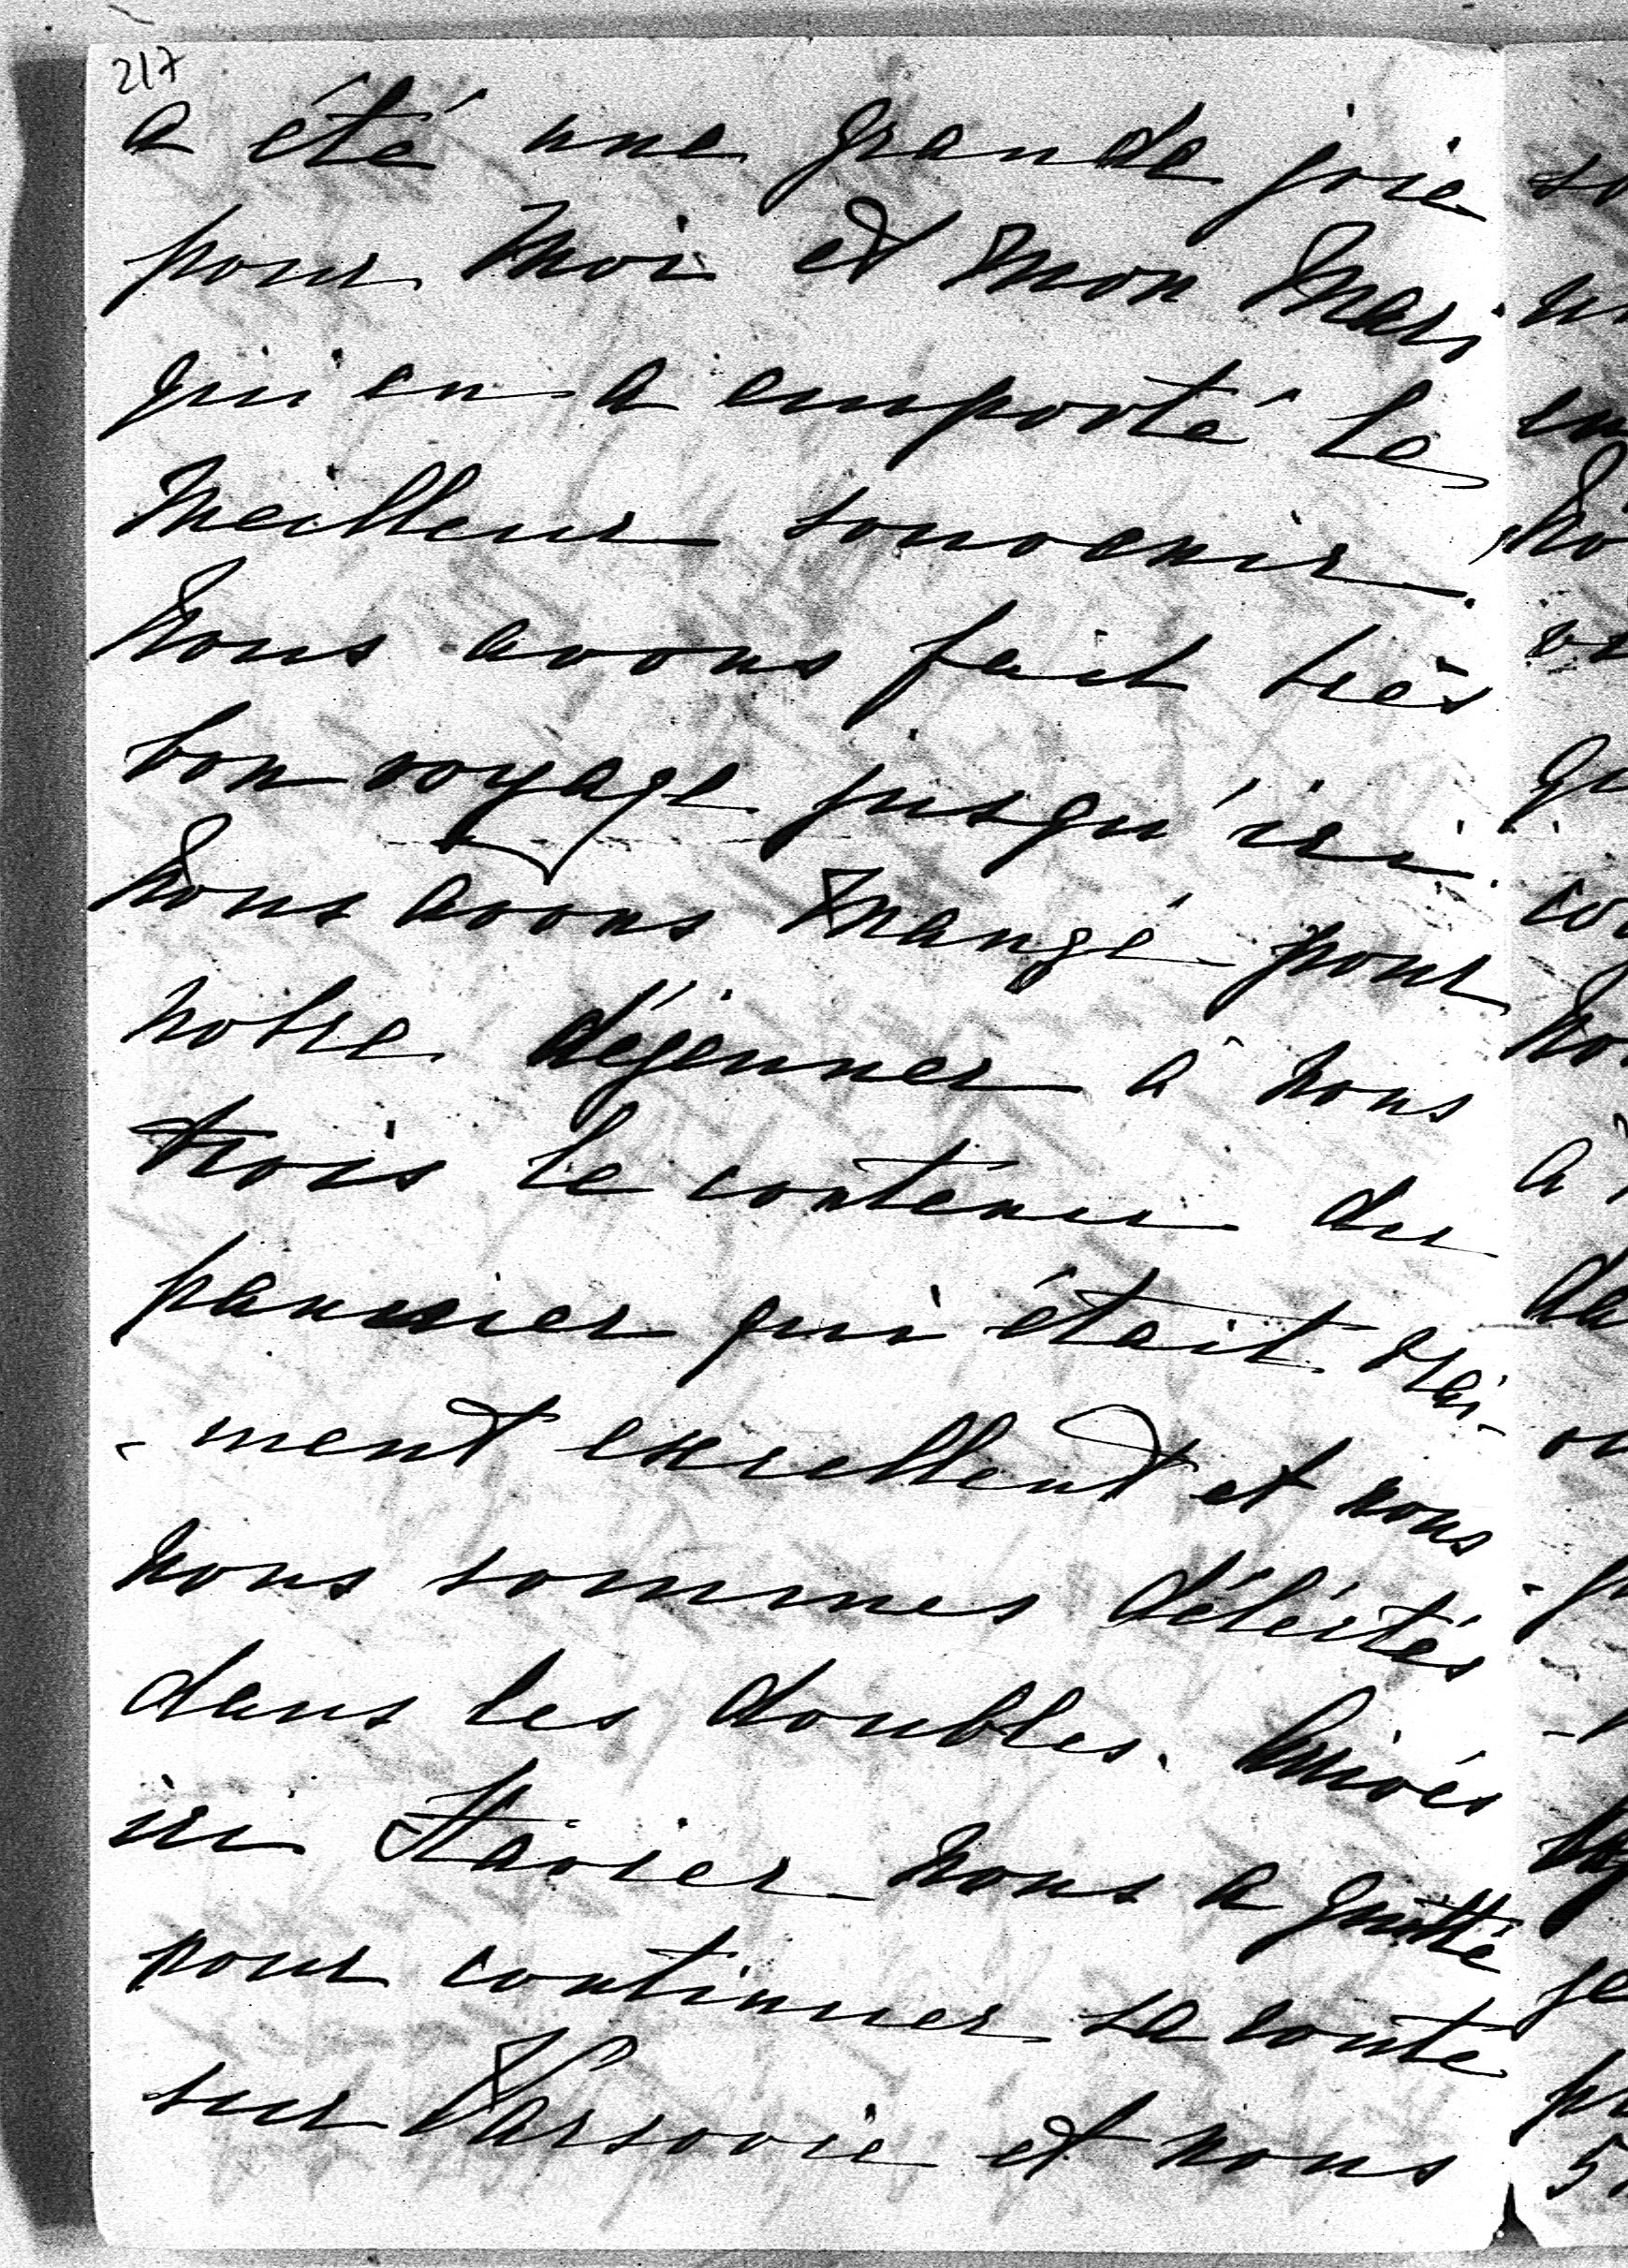 217
a été une grande joie
pour Moi et Mon Mari
qui en a emporté le
Meilleur souvenir.
Nous avons fait très
bon voyage jusqu'ici.
Nous avons Mangé pour
notre déjeuner à nous
trois le contenu du
pannier qui était vrai-
-ment excellent et nous
nous sommes délectés
dans les doubles.
ici Xavier nous a quitté
pour continuer sa route
sur Varsovie et nous